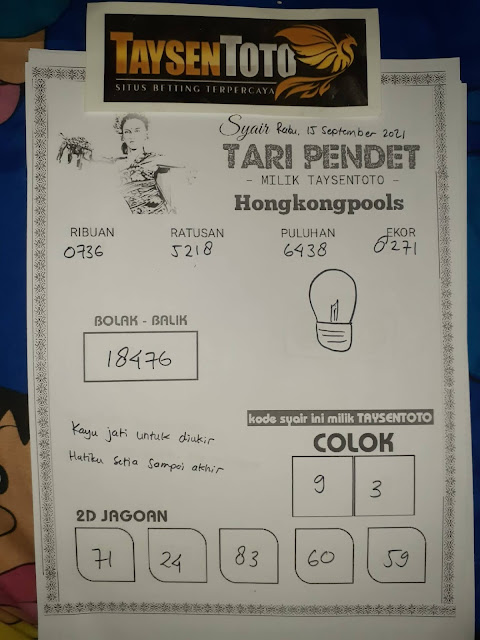 TAYSENTOTO
SITUS BETTING TERPERCAYA
Syair Rabu, 15 September 2021
TARI PENDET
- MILIK TAYSENTOTO -
Hongkongpools
RIBUAN RATUSAN PULUHAN EKOR
0736 5218 6438 0271
BOLAK - BALIK
18476
kode syair ini milik TAYSENTOTO
Kayu jati untuk diukir
Hatiku setia sampai akhir
COLOK
9 3
2D JAGOAN
71 24 83 60 59